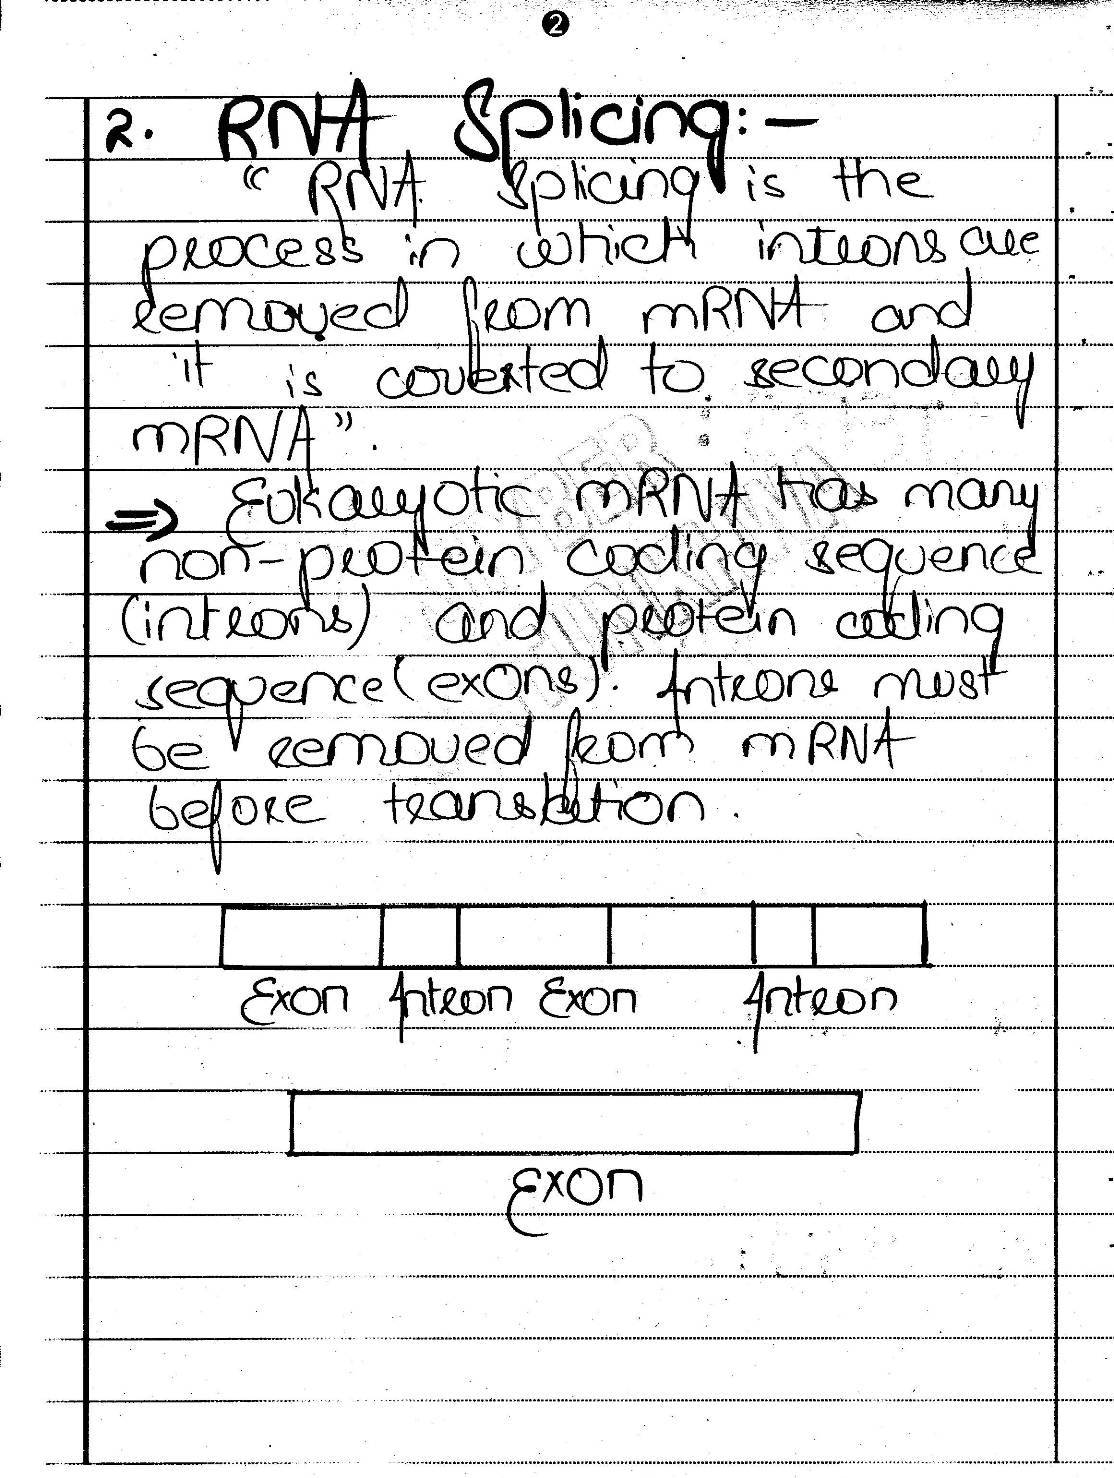 2
2. RNA Splicing:-
“ RNA Splicing is the
process in which introns are
removed from mRNA and
it is coverted to secondary
mRNA”.
⇒ Eukaryotic mRNA has many
non-protein coding sequence
(introns) and protein coding
sequence (exons). Introns must
be removed from mRNA
before translation.
Exon Intron Exon Intron
Exon